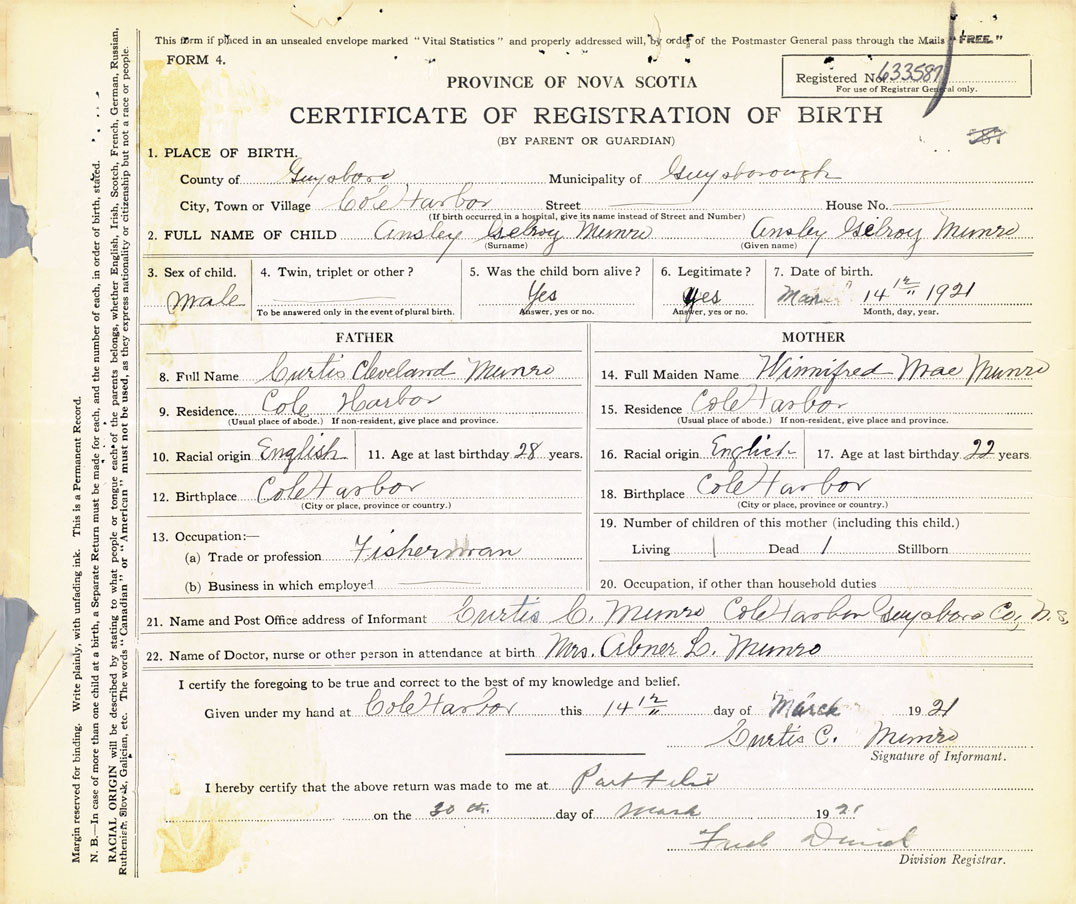 This form if placed in an unsealed envelope marked "Vital Statistics" and properly addressed will, by order of the Postmaster General pass through the Mails "FREE."
FORM 4.
Registered No. 633587
For use of Registrar General only.
PROVINCE OF NOVA SCOTIA
CERTIFICATE OF REGISTRATION OF BIRTH
(BY PARENT OR GUARDIAN)
1. PLACE OF BIRTH.
County of Guysboro Municipality of Guysborough
City, Town or Village Cole Harbor Street House No.
(If birth occurred in a hospital, give its name instead of Street and Number)
2. FULL NAME OF CHILD Ansley Gilroy Munro Ansley Gilroy Munro
(Surname) (Given name)
3. Sex of child. 4. Twin, triplet or other? 5. Was the child born alive? 6. Legitimate? 7. Date of birth.
Male Yes yes Mar 14 th 1921
To be answered only in the event of plural birth. Answer, yes or no. Answer, yes or no. Month, day, year.
FATHER
8. Full Name Curtis Cleveland Munro
9. Residence. Cole Harbor
(Usual place of abode.) If non-resident, give place and province.
10. Racial origin English 11. Age at last birthday 28 years.
12. Birthplace Cole Harbor
(City or place, province or country.)
13. Occupation:—
(a) Trade or profession Fisherman
(b) Business in which employed
MOTHER
14. Full Maiden Name Winnifred Mae Munro
15. Residence Cole Harbor
(Usual place of abode.) If non-resident, give place and province.
16. Racial origin English 17. Age at last birthday 22 years
18. Birthplace Cole Harbor
(City or place, province or country.)
19. Number of children of this mother (including this child.)
Living 1 Dead 1 Stillborn
20. Occupation, if other than household duties
21. Name and Post Office address of Informant Curtis C. Munro Cole Harbor Guysboro Co, N.S,
22. Name of Doctor, nurse or other person in attendance at birth Mrs. Abner L. Munro
I certify the foregoing to be true and correct to the best of my knowledge and belief.
Given under my hand at Cole Harbor this 14 th day of March 1921
Curtis C. Munro
Signature of Informant.
I hereby certify that the above return was made to me at
on the 30 th. day of 1921
Fred David
Division Registrar.
Margin reserved for binding. Write plainly, with unfading ink. This is a Permanent Record.
N. B.—In case of more than one child at a birth, a Separate Return must be made for each, and the number of each, in order of birth, stated.
RACIAL ORIGIN will be described by stating to what people or tongue each of the parents belongs, whether English, Irish, Scotch, French, German, Russian,
Ruthenian, Slovak, Galician, etc. The words "Canadian" or "American" must not be used, as they express nationality or citizenship but not a race or people.